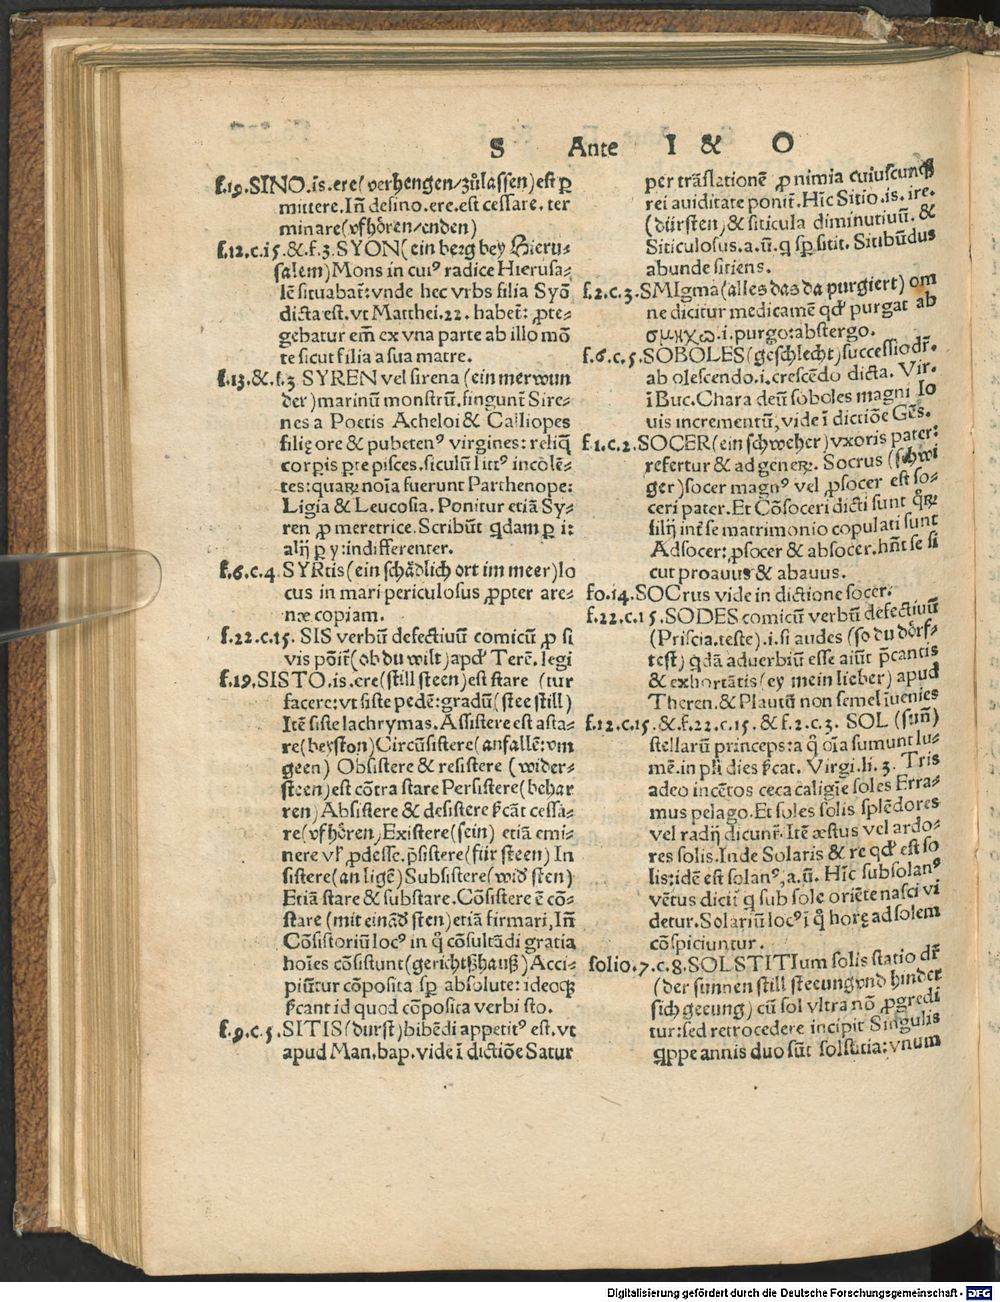 S Ante I & O
f.19.SINO.is.ere(verhengen/zůlassen)est ꝑ
mittere.Iñ desino.ere.est cessare.ter
minare(vfhören/enden)
f.12.c.15.&.f.3.SYON(ein berg bey Hieru-
salem)Mons in cuiꝰ radice Hierusa-
lẽ situabat̃:vnde hec vrbs filia Syõ
dicta est.vt Matthei.22.habet̃: ꝓte-
gebatur em̃ ex vna parte ab illo mõ
te sicut filia a sua matre.
f.13.&.f.3 SYREN vel sirena (ein merwun
der)marinũ monstrũ.fingunt̃ Sire-
nes a Poetis Acheloi & Calliopes
filię ore & pubetenꝰ virgines: reliq̃
corꝑis ꝑte pisces.siculũ littꝰ incolẽ-
tes:quaꝝ noĩa fuerunt Parthenope:
Ligia & Leucosia. Ponitur etiã Sy-
ren ꝓ meretrice. Scribũt qdam ꝑ i:
alij ꝑ y:indifferenter.
f.6.c.4 SYRtis(ein schådlich ort im meer)lo
cus in mari periculosus ꝓpter are-
næ copiam.
f.22.c.15. SIS verbũ defectiuũ comicũ ꝓ si
vis põit̃(ob du wilt)apd' Terẽ.legi
f.19.SISTO.is.ere(still steen)est stare (tur
facere:vt siste pedẽ:gradũ(stee still)
Itẽ siste lachrymas.Assistere est asta-
re(beyston)Circũsistere(anfallẽ:vm
geen) Obsistere & resistere (wider-
steen)est cõtra stare Persistere(behar
ren) Absistere & desistere sĩcãt cessa-
re(vfhören)Existere(sein) etiã emi-
nere vl' ꝓdesse.p̃sistere(für steen) In
sistere(an ligẽ)Subsistere(wid' sten)
Etiã stare & substare.Cõsistere ẽ cõ-
stare (mit einãd' sten)etiã firmari,Iñ
Cõsistoriũ locꝰ in q̊ cõsultãdi gratia
hoĩes cõsistunt(gerichtßhauß)Acci-
piũtur cõposita sꝑ absolute: ideoqꝫ
sĩcant id quod cõposita verbi sto.
f.9.c.5.SITIS(durst)bibẽdi appetitꝰ est.vt
apud Man.bap.vide ĩ dictiõe Satur
per trãslationẽ ꝓ nimia cuiuscunqꝫ
rei auiditate ponit̃.Hĩc Sitio.is.ire.
(dürsten)& siticula diminutiuũ. &
Siticulosus.a.ũ.q sꝑ sitit. Sitibũdus
abunde sitiens.
f.2.c.3.SMIgma(alles das da purgiert) om
ne dicitur medicamẽ qd' purgat ab
σμηχω.i.purgo:abstergo.
f.6.c.5.SOBOLES(geschlecht)successio dr̃.
ab olescendo.i.crescẽdo dicta. Vir.
ĩ Buc.Chara deũ soboles magni Io
uis incrementũ,vide ĩ dictiõe Gẽs.
f.1.c.2.SOCER(ein schweher)vxoris pater:
refertur & ad geneꝝ. Socrus (schwi
ger)socer magnꝰ vel ꝓsocer est so-
ceri pater.Et Cõsoceri dicti sunt q̊ꝝ
filij int̃ se matrimonio copulati sunt
Adsocer:ꝓsocer & absocer.hñt se si
cut proauus & abauus.
fo.14.SOCrus vide in dictione socer.
f.22.c.15.SODES comicũ verbũ defectiuũ
(Priscia.teste).i.si audes (so du dörf-
test) qdã aduerbiũ esse aiũt p̃cantis
& exhortãtis(ey mein lieber) apud
Theren.& Plautũ non semel ĩuenies
f.12.c.15.&.f.22.c.15.&.f.2.c.3. SOL (sũn)
stellarũ princeps:a q̊ oĩa sumunt lu-
mẽ.in pl'i dies sĩcat. Virgi.li.3. Tris
adeo incẽtos ceca caligĩe soles Erra-
mus pelago.Et soles solis splẽdores
vel radij dicunt̃.Itẽ æstus vel ardo-
res solis.Inde Solaris & re qd' est so
lis:idẽ est solanꝰ,a.ũ. Hĩc subsolanꝰ
vẽtus dicit̃ q sub sole oriẽte nasci vi
detur.Solariũ locꝰ ĩ q̊ horę ad solem
cõspiciuntur.
folio.7.c.8.SOLSTITIum solis statio dr̃
(der sunnen still steeung vnd hinder
sich geeung) cũ sol vltra nõ ꝓgredi
tur:sed retrocedere incipit Singulis
qppe annis duo sũt solstitia:vnum
Digitalisierung gefördert durch die Deutsche Forschungsgemeinschaft - DFG